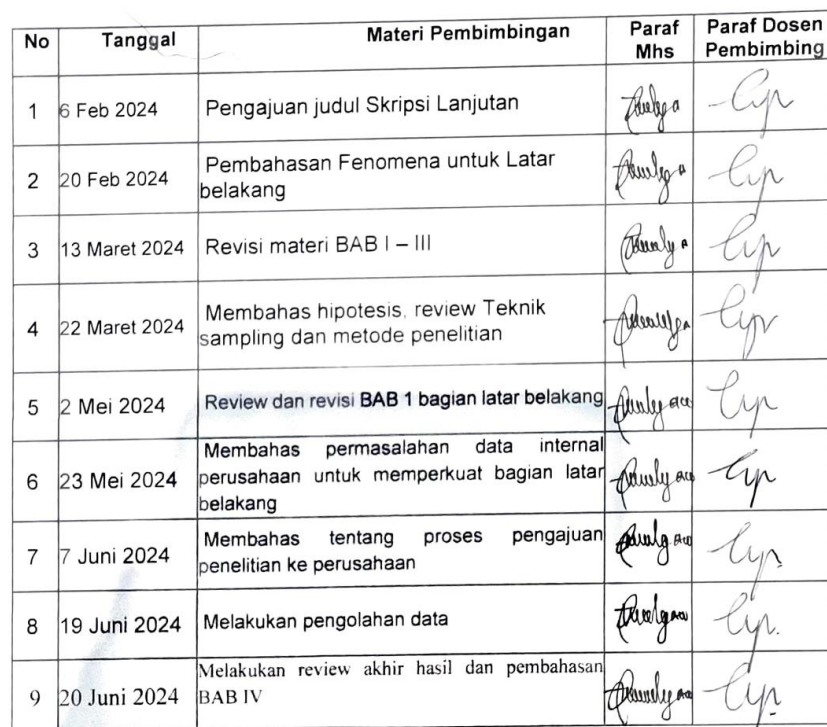 No Tanggal Materi Pembimbingan Paraf Mhs Paraf Dosen Pembimbing
1 6 Feb 2024 Pengajuan judul Skripsi Lanjutan
2 20 Feb 2024 Pembahasan Fenomena untuk Latar
belakang
3 13 Maret 2024 Revisi materi BAB I – III
4 22 Maret 2024 Membahas hipotesis, review Teknik
sampling dan metode penelitian
5 2 Mei 2024 Review dan revisi BAB 1 bagian latar belakang
6 23 Mei 2024 Membahas permasalahan data internal
perusahaan untuk memperkuat bagian latar
belakang
7 7 Juni 2024 Membahas tentang proses pengajuan
penelitian ke perusahaan
8 19 Juni 2024 Melakukan pengolahan data
9 20 Juni 2024 Melakukan review akhir hasil dan pembahasan
BAB IV